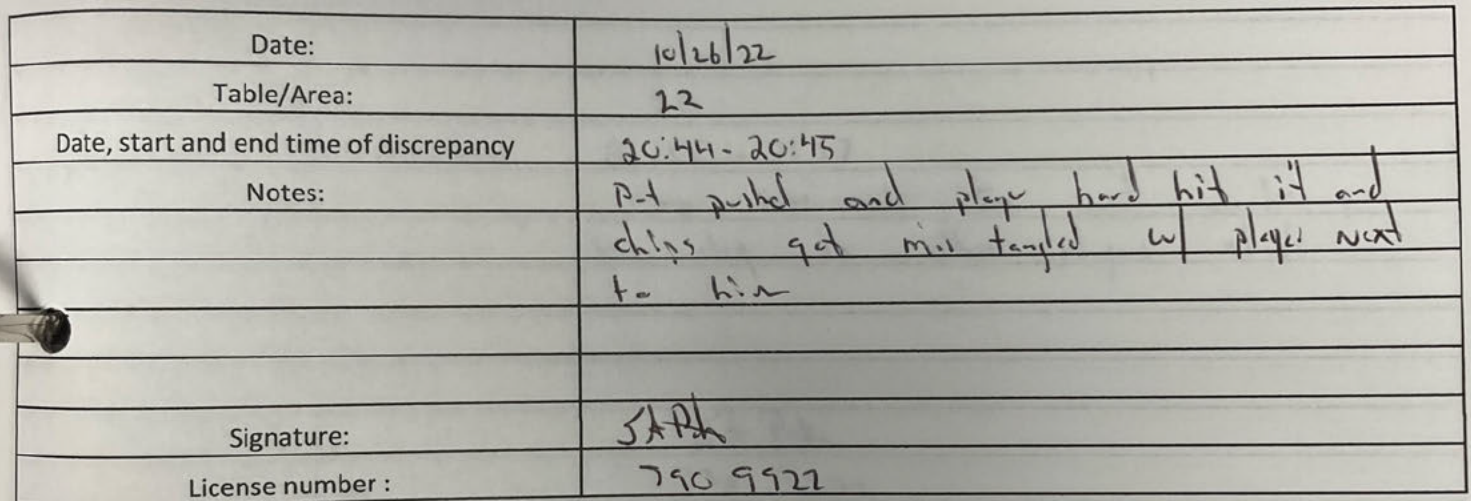 Date: 10/26/22
Table/Area: 22
Date, start and end time of discrepancy 20:44-20:45
Notes: Pot pushed and player hand hit it and
chips got tangled w/ player next
to him
Signature:
License number : 790 9922